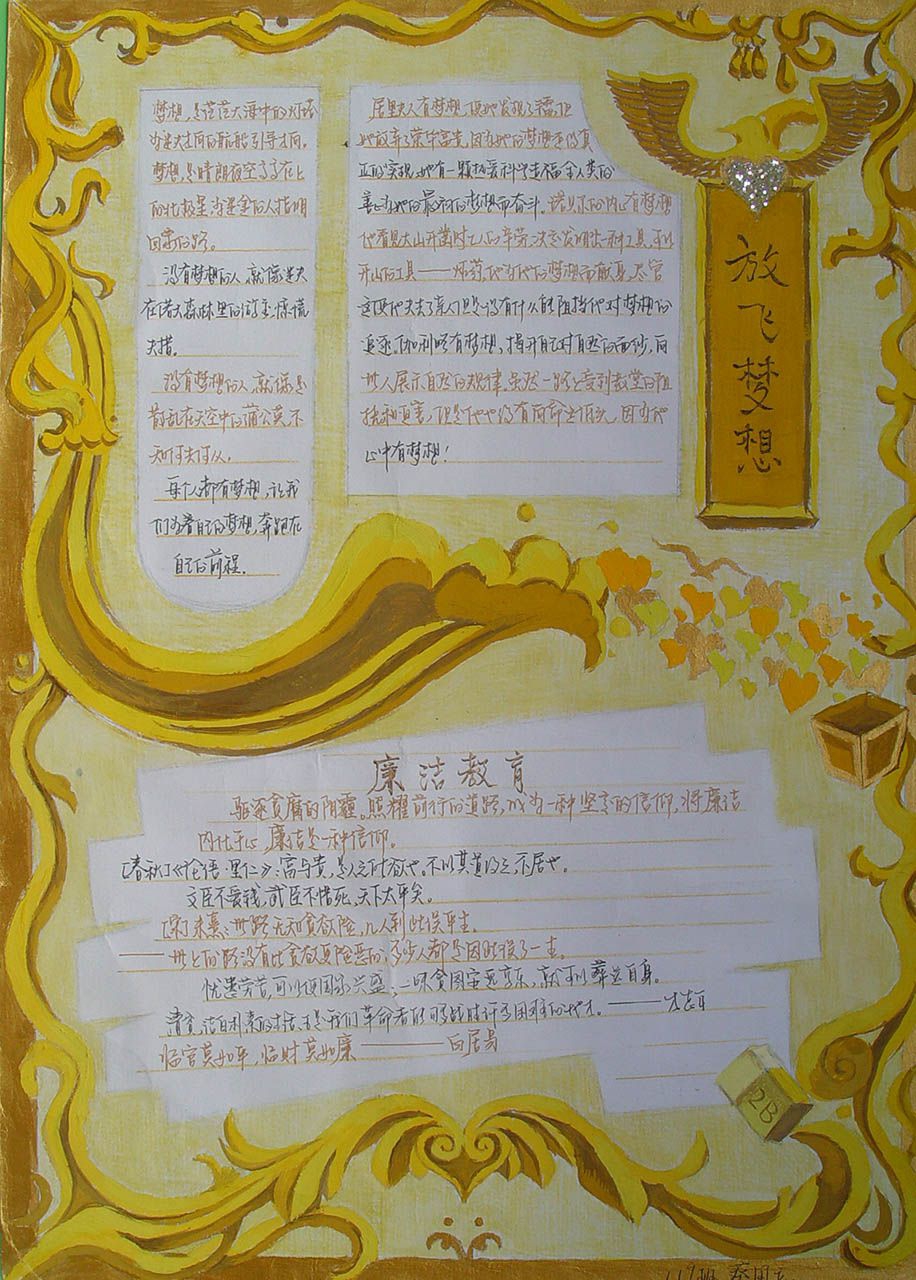 放飞梦想
梦想，是茫茫大海中的灯塔
为迷失方向的船舶引导方向。
梦想，是晴朗夜空高高在上
的北极星，为迷途的人指明
回家的路。
没有梦想的人，就像迷失
在诺大森林里的游客，惊慌
失措。
没有梦想的人，就像是
散乱在天空中的蒲公英，不
知何去何从。
每个人都有梦想，让我
们为着自己的梦想，奔跑在
自己的前程。
居里夫人有梦想
她放弃了荣华富贵，因为她的梦想
正的实现，她有一颗热爱科学造福全人类的
为她的最初的梦想而奋斗。诺贝尔的内心有梦想
他看见大山开凿时工人的辛劳，决定发明出一种工具，可以
开山的工具——炸药，他为他的梦想而献身，尽管
这使他失去了亲人但是没有什么能阻挡他对梦想的
追逐。伽利略有梦想，揭开自己对自然的面纱，向
世人展示自然的规律，虽然一路上受到教堂的阻
挠和迫害，但是他也没有向命运低头，因为他
心中有梦想！
廉洁教育
驱逐贪腐的阴霾。照耀前行的道路，成为一种坚定的信仰，将廉洁
内化于心，廉洁是一种信仰。
[春秋]《论语·里仁》：富与贵，是人之所欲也，不以其道得之，不居也。
文臣不爱钱，武臣不惜死，天下太平矣。
[宋]朱熹：世路无如贪欲险，几人到此误平生。
——世上的路没有比贪欲更险恶的，多少人都是因此误了一生。
忧患劳苦，可以使国家兴盛；一味贪图安逸享乐，就可以葬送自身。
清贫，洁白朴素的生活，正是我们革命者能够战胜许多困难的地方。——方志敏
临官莫如平，临财莫如廉————向居易
2B
119班 蔡